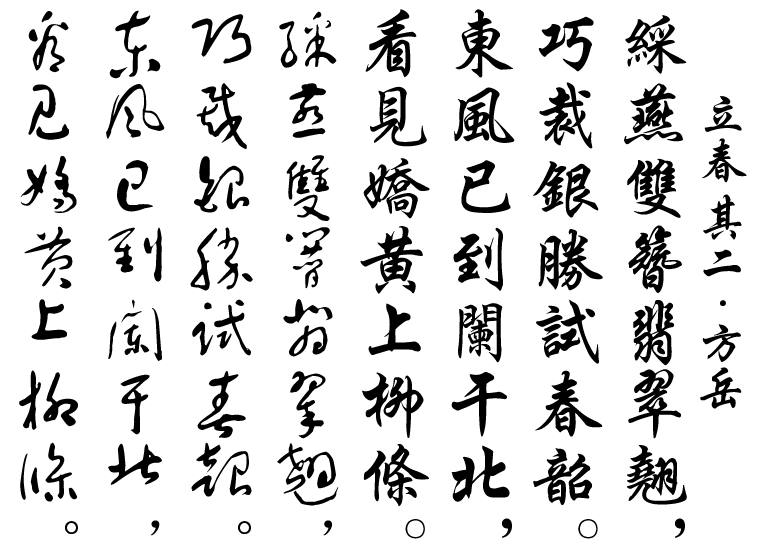 立春其二·方岳
綵燕雙簪翡翠翹，
巧裁銀勝試春韶。
東風已到闌干北，
看見嬌黃上柳條。
綵燕雙簪翡翠翹，
巧裁銀勝試春韶。
東風已到闌干北，
看見嬌黃上柳條。